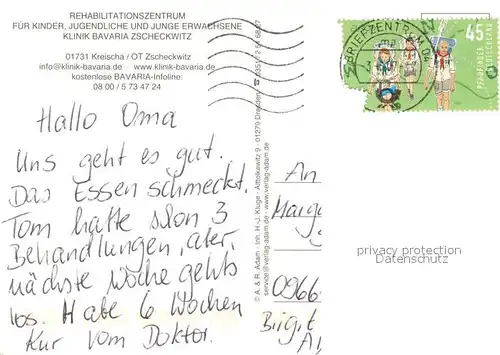 REHABILITATIONSZENTRUM
FÜR KINDER, JUGENDLICHE UND JUNGE ERWACHSENE
KLINIK BAVARIA ZSCHECKWITZ
01731 Kreischa / OT Zscheckwitz
info@klinik-bavaria.de www.klinik-bavaria.de
kostenlose BAVARIA-Infoline:
08 00 / 5 73 47 24
Hallo Oma
Uns geht es gut.
Das Essen schmeckt.
Tom hatte schon 3
Behandlungen, aber
nächste Woche gehts
los. Habe 6 Wochen
Kur vom Doktor.
© A. & R. Adam - Inh. H.-J. Kluge - Alttolkewitz 9 - 01279 Dresden
service@verlag-adam.de - www.verlag-adam.de
BRIEFZENTRUM 04
45
PFADFINDER
DEUTSCHLAND
An
0966
Birgit
privacy protection
Datenschutz